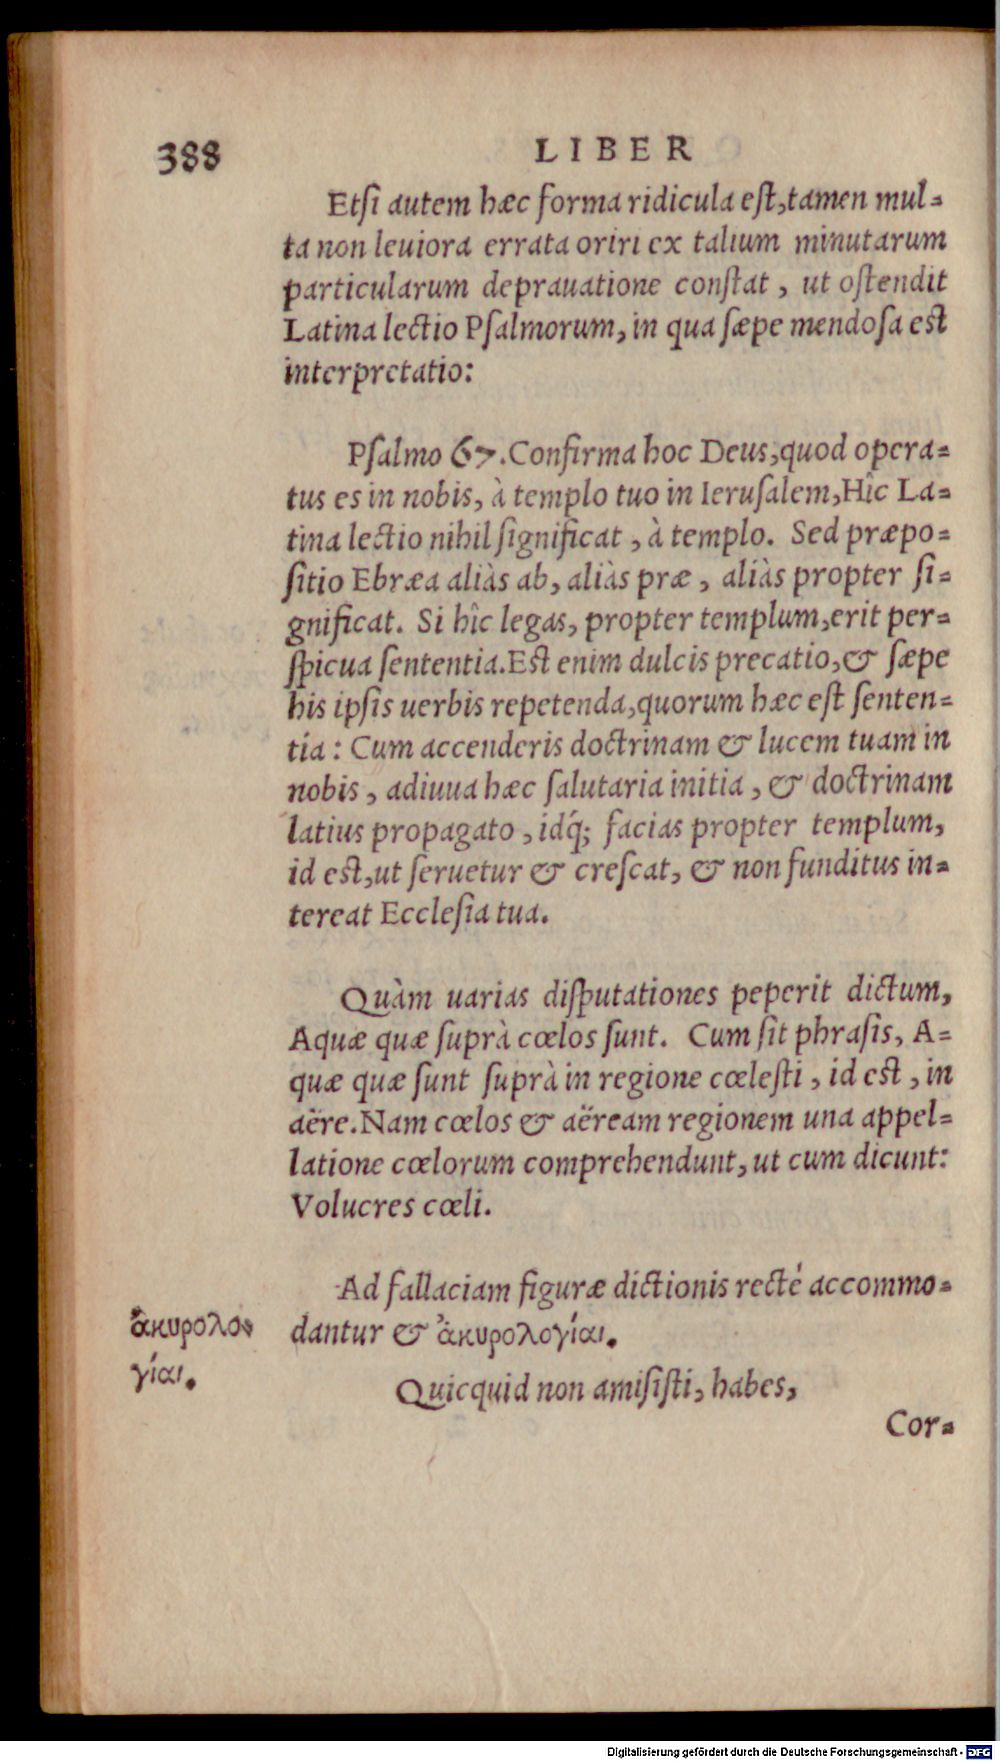 388
LIBER
Etſi autem hæc forma ridicula eſt, tamen mul-
ta non leuiora errata oriri ex talium minutarum
particularum deprauatione conſtat, ut oſtendit
Latina lectio Pſalmorum, in qua ſæpe mendoſa eſt
interpretatio:
Pſalmo 67. Confirma hoc Deus, quod opera-
tus es in nobis, à templo tuo in Ieruſalem, Hîc La-
tina lectio nihil ſignificat, à templo. Sed præpo-
ſitio Ebræa aliàs ab, aliàs præ, aliàs propter ſi-
gnificat. Si hîc legas, propter templum, erit per-
ſpicua ſententia. Eſt enim dulcis precatio, & ſæpe
his ipſis uerbis repetenda, quorum hæc eſt ſenten-
tia: Cum accenderis doctrinam & lucem tuam in
nobis, adiuua hæc ſalutaria initia, & doctrinam
latius propagato, idq́; facias propter templum,
id eſt, ut ſeruetur & creſcat, & non funditus in-
tereat Eccleſia tua.
Quàm uarias diſputationes peperit dictum,
Aquæ quæ ſuprà cœlos ſunt. Cum ſit phraſis, A-
quæ quæ ſunt ſuprà in regione cœleſti, id eſt, in
aëre. Nam cœlos & aëream regionem una appel-
latione cœlorum comprehendunt, ut cum dicunt:
Volucres cœli.
Ad fallaciam figuræ dictionis recté accommo-
dantur & ἀκυρολογίαι.
ἀκυρολο-
γίαι.
Quicquid non amiſiſti, habes,
Cor-
Digitalisierung gefördert durch die Deutsche Forschungsgemeinschaft - DFG